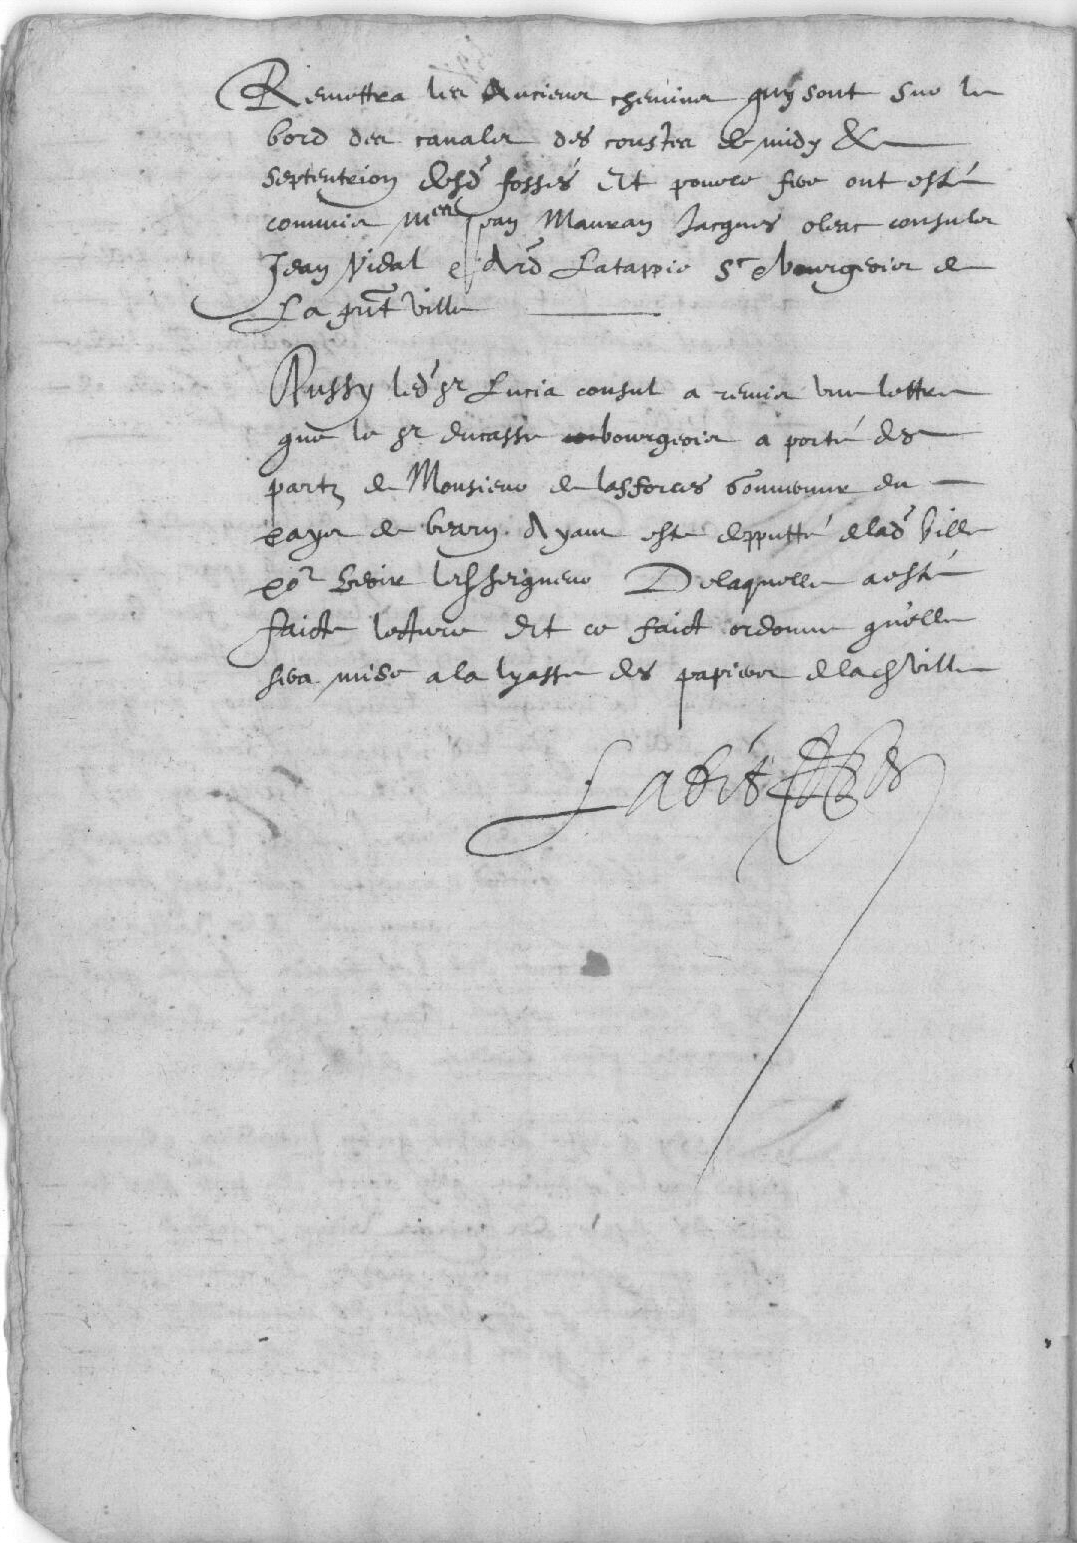 Remettra les Anciens chemins quy sont sur le
bord des canales des coustes de midy &
septentrion desd fossés Et pource fere ont esté
commis Mers Jean Mauran Jacques oleac consuls
Jean Vidal e Ard Latappie Srs bourgeois de
La pnt ville
Aussy led sr Lucia consul a remis une lettre
que le sr ducasse bourgeois a porté des
partz de Monsieur de lasforces Gouverneur du
pays de bearn Ayant esté depputté de lad Ville
por led seigneur De laquelle a esté
faicte lecture Et ce faict ordonne qu'elle
sera mise a la lyasse des papiers de lad Ville